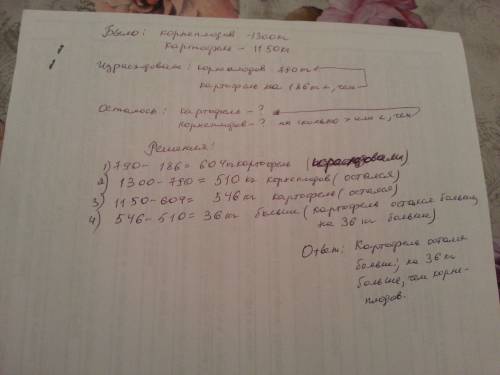 Было: корнеплодов - 1300кг
картофеля - 1150кг
Израсходовали: корнеплодов 790кг
картофеля на 186кг <, чем
Осталось: картофеля - ?
корнеплодов - ? на сколько > или <, чем
Решение:
1) 790 - 186 = 604кг картофеля (израсходовали)
2) 1300 - 790 = 510 кг корнеплодов (остался)
3) 1150 - 604 = 546 кг картофеля (остался)
4) 546 - 510 = 36 кг больше (картофеля остался больше,
на 36 кг больше)
Ответ: Картофеля остался
больше; на 36 кг
больше, чем корне-
плодов.